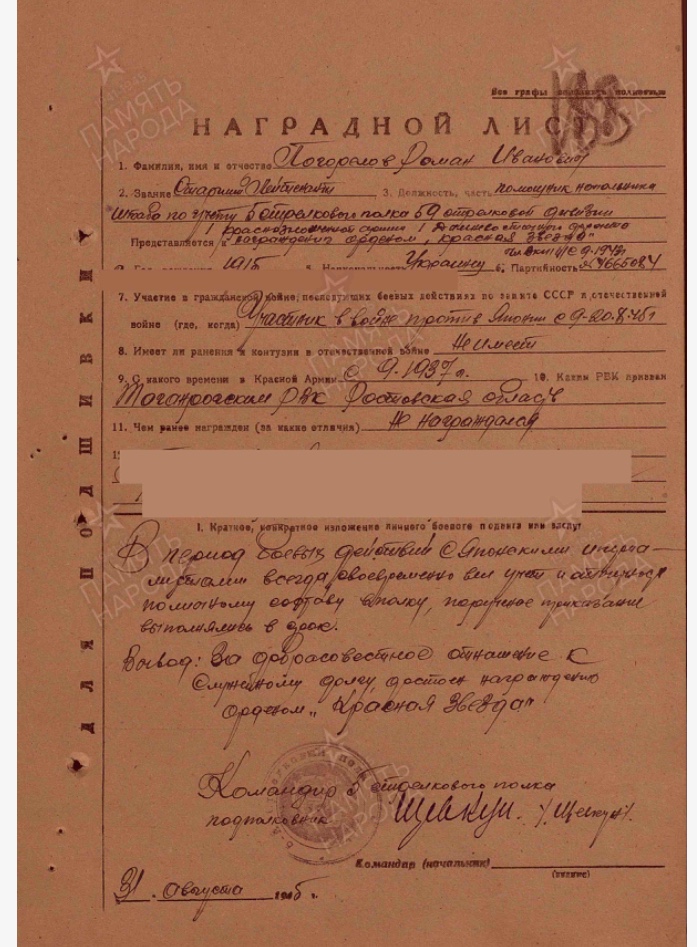 Все графы заполнять полностью
НАГРАДНОЙ ЛИСТ
1. Фамилия, имя и отчество Погорелов Роман Иванович
2. Звание Старший Лейтенант 3. Должность, часть помощник начальника
штаба по учету 5 стрелкового полка 59 стрелковой дивизии
1 краснознаменной армии 1 Дальневосточного фронта
Представляется к награждению орденом „Красная Звезда"
1915 5. Национальность Украинец 6. Партийность
7. Участие в гражданской войне, последующих боевых действиях по защите СССР и отечественной
войне (где, когда) Участник в войне против Японии с 9-20.8.45г
8. Имеет ли ранения и контузии в отечественной войне Не имеет
9. С какого времени в Красной Армии с 9.1937г. 10. Каким РВК призван
Таганрогским РВК Ростовская область
11. Чем ранее награжден (за какие отличия) Не награждался
I. Краткое, конкретное изложение личного боевого подвига или заслуг
В период боевых действий с Японскими импера-
листами всегда своевременно вел учет и
личному составу в полку, порученое приказание
выполнялись в срок.
Вывод: За добрасовестное отнашение к
Служебному долгу достоен награждению
орденом „Красная Звезда"
Командир 5 стрелкового полка
подполковник Шевкун. /Шевкун/.
Командир (начальник)
(подпись)
31. Августа 1945 г.
ДЛЯ ПОДШИВКИ
ПАМЯТЬ
НАРОДА